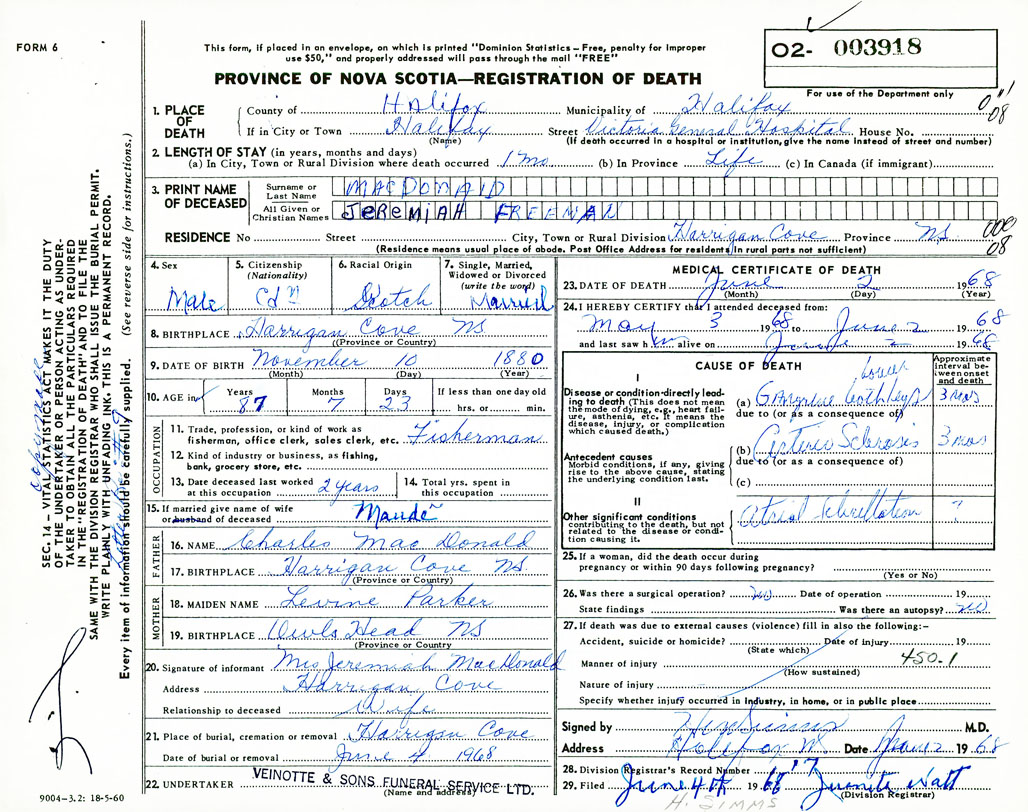 FORM 6
This form, if placed in an envelope, on which is printed "Dominion Statistics – Free, penalty for improper
use $50," and properly addressed will pass through the mail "FREE"
PROVINCE OF NOVA SCOTIA—REGISTRATION OF DEATH
O2- 003918
For use of the Department only
08
1. PLACE OF DEATH
County of Halifax Municipality of Halifax
If in City or Town Halifax Street Victoria General Hospital House No.
(Name) (If death occurred in a hospital or institution, give the name instead of street and number)
2. LENGTH OF STAY (in years, months and days)
(a) In City, Town or Rural Division where death occurred 1 mo (b) In Province Life (c) In Canada (if immigrant)
3. PRINT NAME OF DECEASED
Surname or Last Name MACDONALD
All Given or Christian Names JEREMIAH FREEMAN
RESIDENCE No Street City, Town or Rural Division Harrigan Cove Province NS
(Residence means usual place of abode. Post Office Address for residents in rural parts not sufficient)
08
4. Sex Male
5. Citizenship (Nationality) Cdn
6. Racial Origin Scotch
7. Single, Married, Widowed or Divorced (write the word) Married
8. BIRTHPLACE Harrigan Cove NS
(Province or Country)
9. DATE OF BIRTH November 10 1880
(Month) (Day) (Year)
10. AGE in Years 87 Months 7 Days 23 If less than one day old hrs. or min.
OCCUPATION
11. Trade, profession, or kind of work as
fisherman, office clerk, sales clerk, etc. Fisherman
12. Kind of industry or business, as fishing,
bank, grocery store, etc.
13. Date deceased last worked
at this occupation 2 years
14. Total yrs. spent in
this occupation
15. If married give name of wife
or husband of deceased Maude
FATHER
16. NAME Charles MacDonald
17. BIRTHPLACE Harrigan Cove NS
(Province or Country)
MOTHER
18. MAIDEN NAME Levine Parker
19. BIRTHPLACE Owls Head NS
(Province or Country)
20. Signature of informant Mrs Jeremiah MacDonald
Address Harrigan Cove
Relationship to deceased Wife
21. Place of burial, cremation or removal Harrigan Cove
Date of burial or removal June 4 1968
22. UNDERTAKER VEINOTTE & SONS FUNERAL SERVICE LTD.
(Name and address)
MEDICAL CERTIFICATE OF DEATH
23. DATE OF DEATH June 2 1968
(Month) (Day) (Year)
24. I HEREBY CERTIFY that I attended deceased from:
May 3 1968 to June 2 1968
and last saw him alive on June 2 1968
CAUSE OF DEATH
Approximate interval between onset and death
I
Disease or condition directly leading to death (This does not mean the mode of dying, e.g., heart failure, asthenia, etc. It means the disease, injury, or complication which caused death.)
lower
(a) Gangrene both legs 3 mos
due to (or as a consequence of)
Antecedent causes
Morbid conditions, if any, giving rise to the above cause, stating the underlying condition last.
(b) Arterio Sclerosis 3 mos
due to (or as a consequence of)
(c)
II
Other significant conditions
contributing to the death, but not related to the disease or condition causing it.
Atrial fibrillation ?
25. If a woman, did the death occur during
pregnancy or within 90 days following pregnancy?
(Yes or No)
26. Was there a surgical operation? no Date of operation 19
State findings Was there an autopsy? no
27. If death was due to external causes (violence) fill in also the following:-
Accident, suicide or homicide? Date of injury 19
(State which)
Manner of injury 450.1
(How sustained)
Nature of injury
Specify whether injury occurred in industry, in home, or in public place
Signed by Simms M.D.
Address Halifax NS Date June 2 1968
28. Division Registrar's Record Number
29. Filed June 4th 1968 Juanita Watt
(Division Registrar)
H. SIMMS
SEC. 14 – VITAL STATISTICS ACT MAKES IT THE DUTY
OF THE UNDERTAKER OR PERSON ACTING AS UNDER-
TAKER TO OBTAIN ALL THE PARTICULARS REQUIRED
IN THE "REGISTRATION OF DEATH" AND TO FILE THE
SAME WITH THE DIVISION REGISTRAR WHO SHALL ISSUE THE BURIAL PERMIT.
WRITE PLAINLY WITH UNFADING INK. THIS IS A PERMANENT RECORD.
Every item of information should be carefully supplied. (See reverse side for instructions.)
9004–3.2: 18-5-60